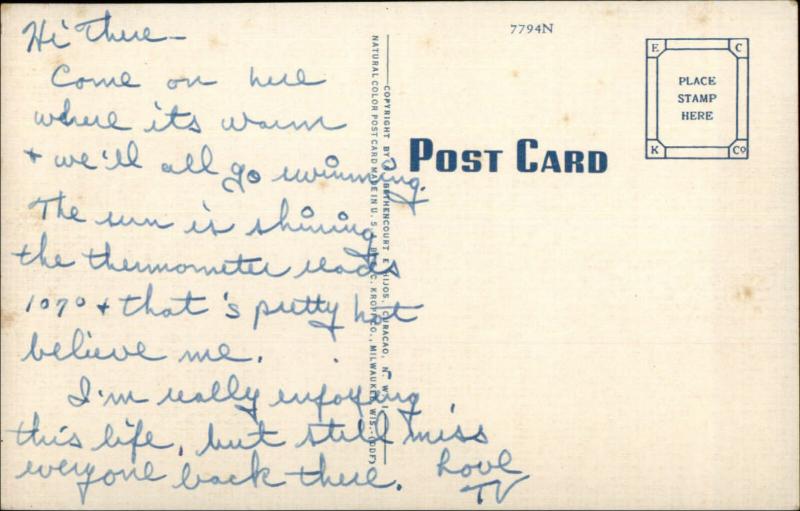 Hi There -
Come on here
where its warm
+ we'll all go swimming.
The sun is shining
the thermometer reads
107° + that's pretty hot
believe me.
I'm really enjoying
this life, but still miss
everyone back there. Love
TV
NATURAL COLOR POST CARD MADE IN U. S. A. BY E. C. KROPP CO., MILWAUKEE, WIS. (DDF)
COPYRIGHT BY BETHENCOURT E HIJOS, CURACAO, N. W. I.
7794N
POST CARD
E C
PLACE
STAMP
HERE
K Co